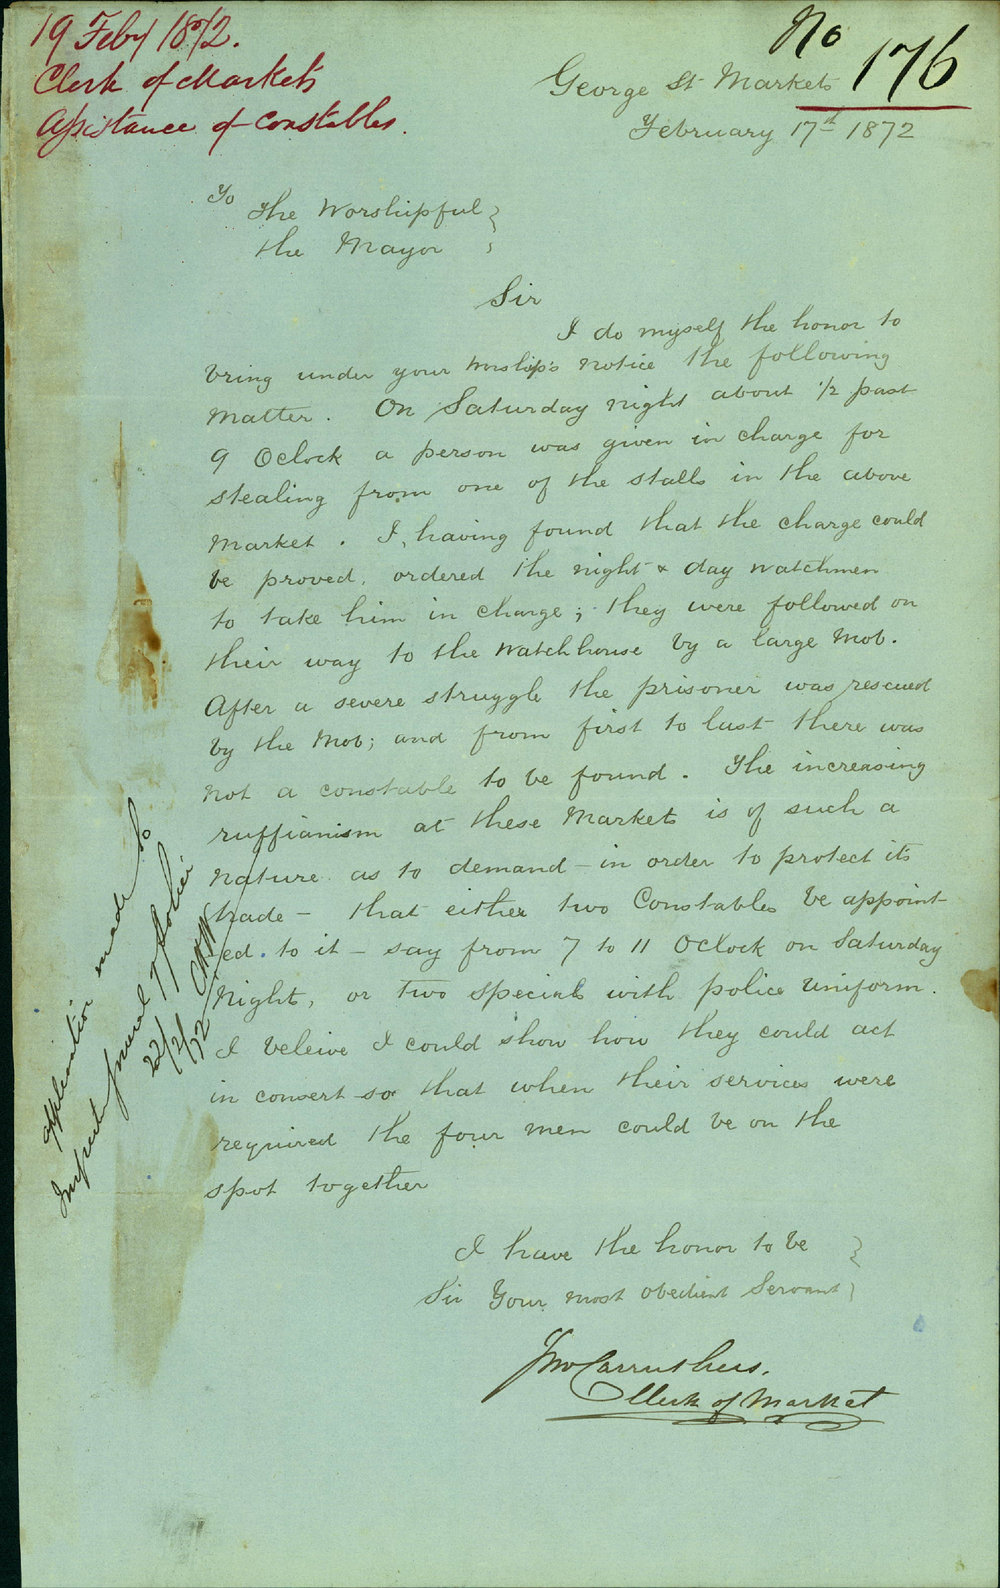 19 Feby 1872.
Clerk of Markets
Assistance of Constables.
No 176
George St Markets
February 17th 1872
To the Worshipful
the Mayor
Sir
I do myself the honor to
bring under your Worship's notice the following
matter. On Saturday night about 1/2 past
9 Oclock a person was given in charge for
stealing from one of the stalls in the above
Market. I, having found that the charge could
be proved, ordered the night & day watchmen
to take him in charge; they were followed on
their way to the watchhouse by a large mob.
After a severe struggle the prisoner was rescued
by the mob; and from first to last there was
not a constable to be found. The increasing
ruffianism at these Markets is of such a
nature as to demand - in order to protect its
trade - that either two Constables be appoint-
ed to it - say from 7 to 11 Oclock on Saturday
Night, or two specials with police uniform.
I beleive I could show how they could act
in consert so that when their services were
required the four men could be on the
spot together
I have the honor to be
Sir Your most obedient Servant
Jno Carruthers.
Clerk of Market
application made to
Inspector General of Police
22/2/72 CHW